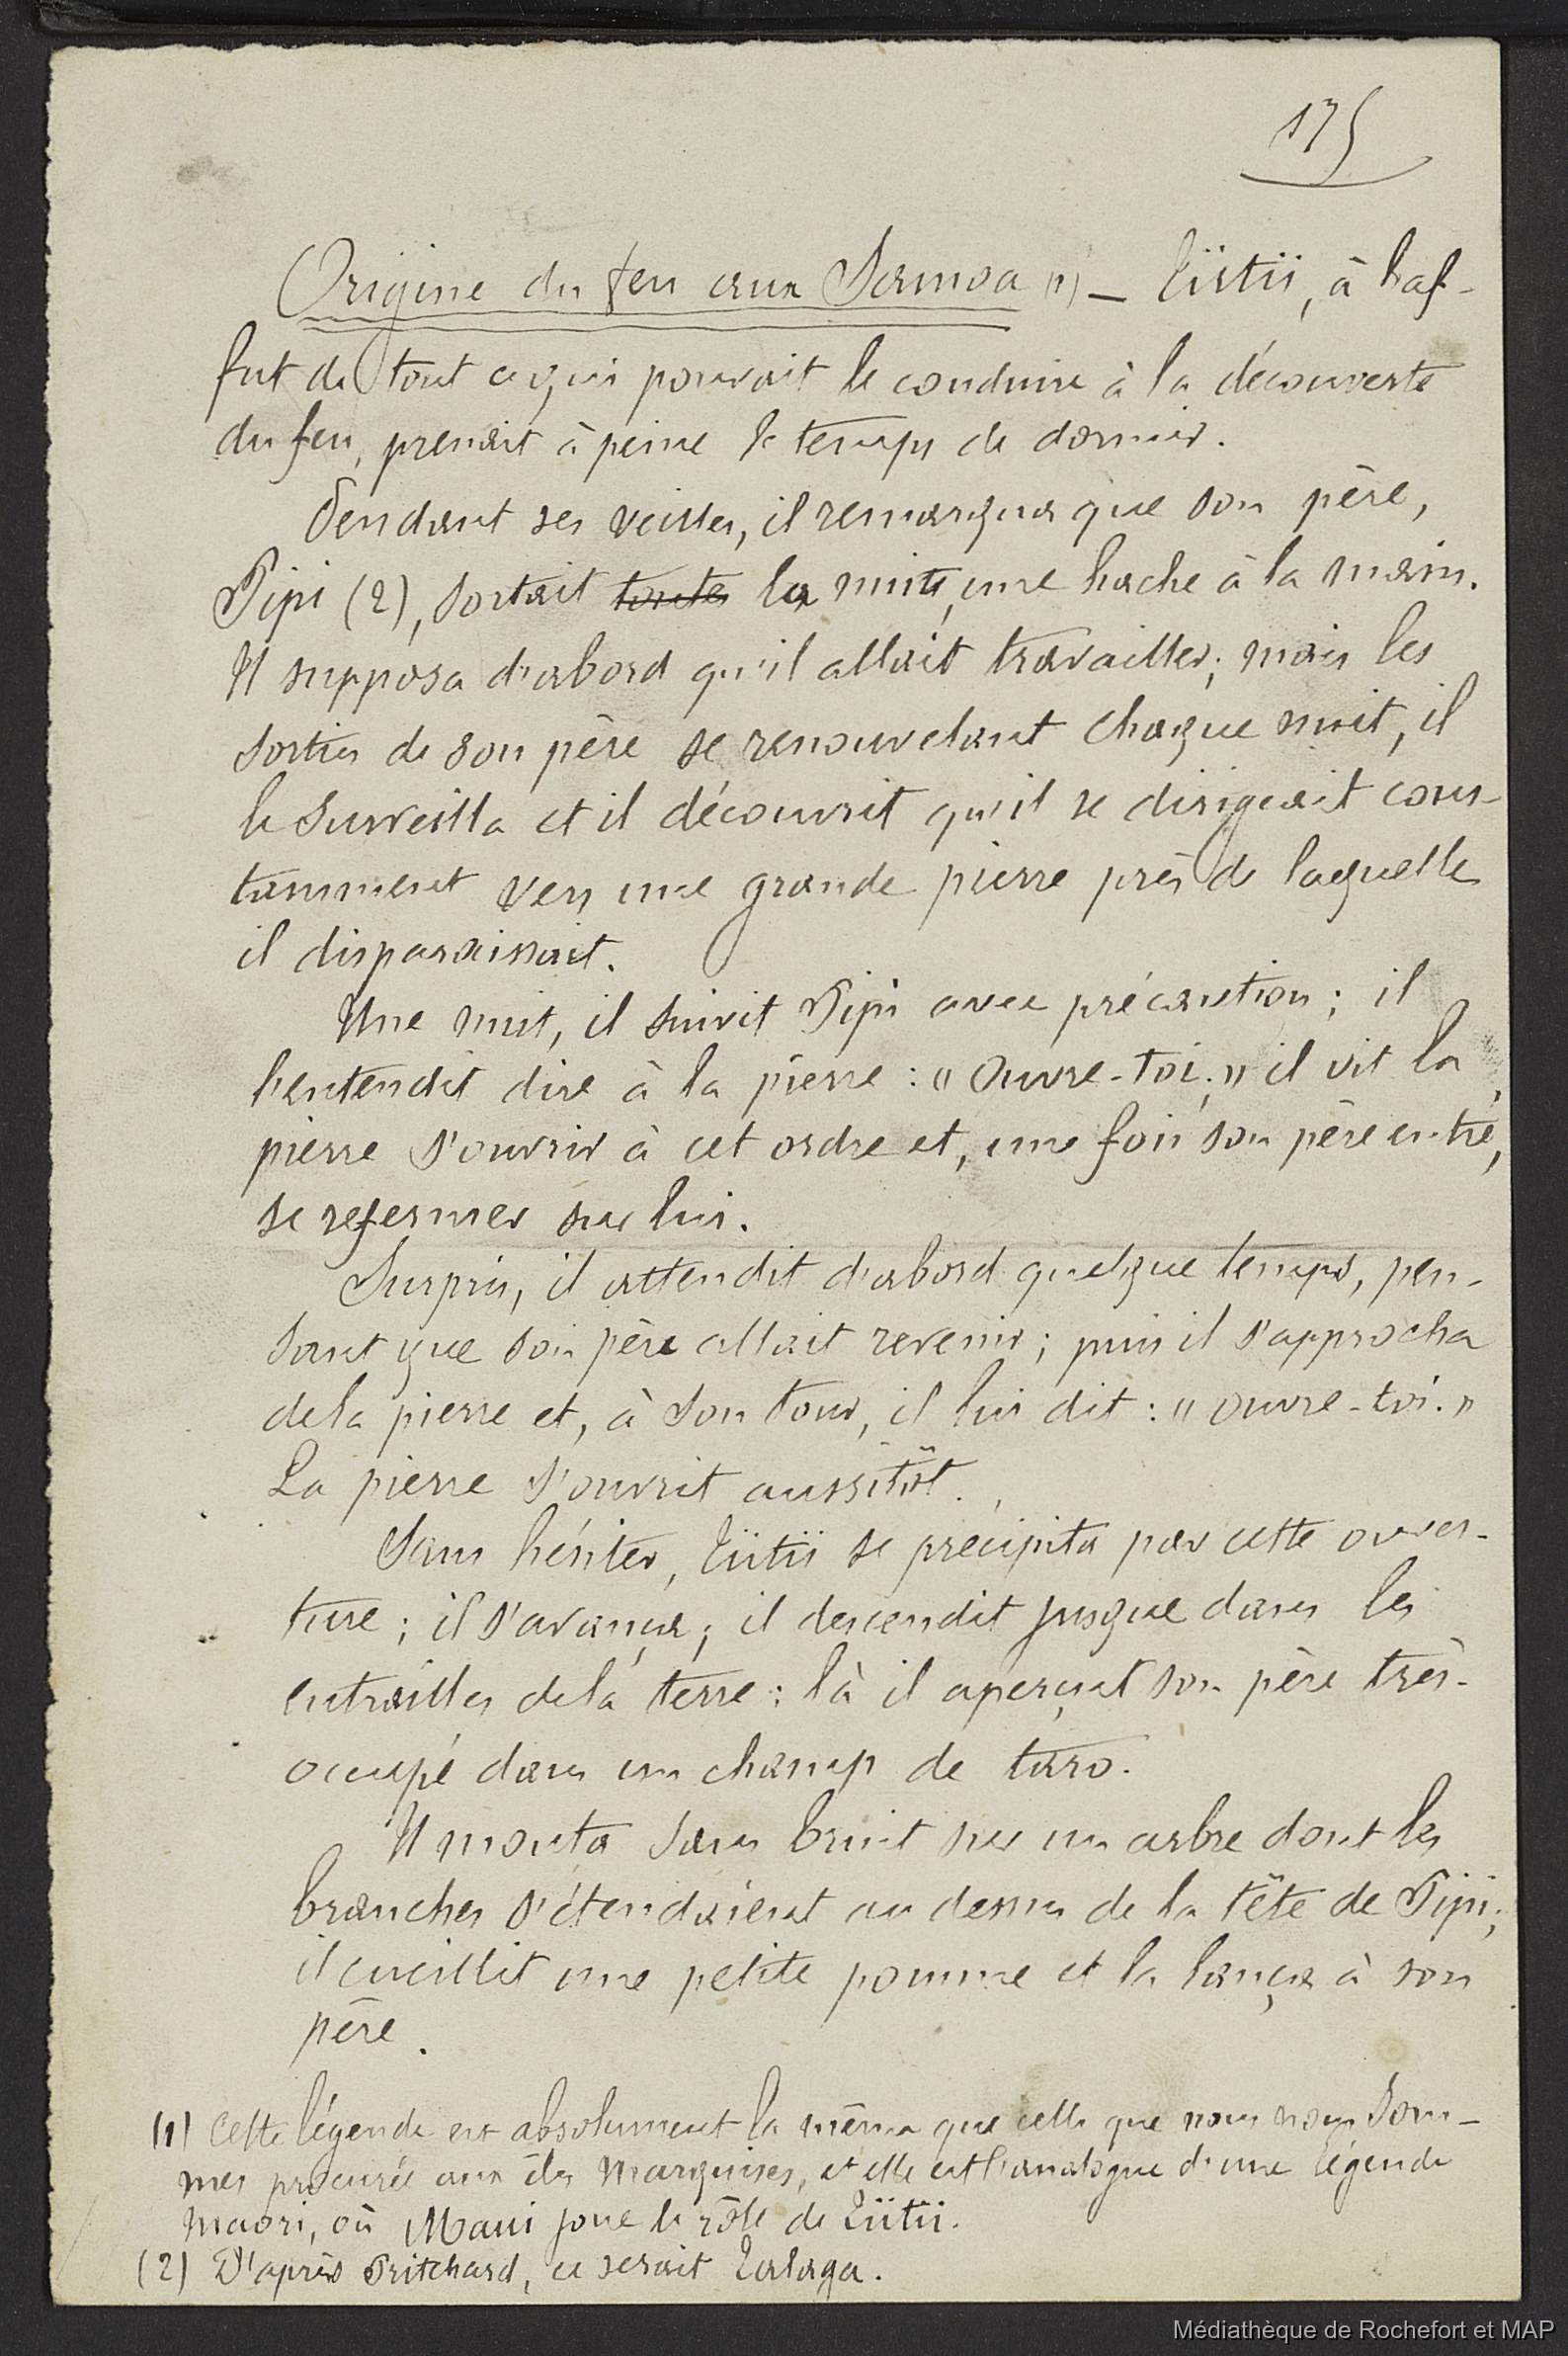 175
Origine du feu aux Samoa (1) — Tiïtiï, à l'af-
fut de tout ce qui pouvait le conduire à la découverte
du feu, prenait à peine le temps de dormir.
Pendant ses veilles, il remarqua que son père,
Pipi (2), sortait toutes la nuit, une hache à la main.
Il supposa d'abord qu'il allait travailler; mais les
sorties de son père se renouvelant chaque nuit, il
le surveilla et il découvrit qu'il se dirigeait cons-
tamment vers une grande pierre près de laquelle
il disparaissait.
Une nuit, il suivit Pipi avec précaution; il
l'entendit dire à la pierre : « Ouvre-toi; » il vit la
pierre s'ouvrir à cet ordre et, une fois son père entré,
se refermer sur lui.
Surpris, il attendit d'abord quelque temps, pen-
sant que son père allait revenir; puis il s'approcha
de la pierre et, à son tour, il lui dit : « ouvre-toi. »
La pierre s'ouvrit aussitôt.
Sans hésiter, Tiïtiï se précipita par cette ouver-
ture; il s'avança; il descendit jusque dans les
entrailles de la terre : là il aperçut son père très-
occupé dans un champ de taro.
Il monta sans bruit sur un arbre dont les
branches s'étendaient au dessus de la tête de Pipi;
il cueillit une petite pomme et la lança à son
père.
(1) Cette légende est absolument la même que celle que nous nous som-
mes procurée aux îles Marquises, et elle est l'analogue d'une légende
maori, où Maui joue le rôle de Tiïtiï.
(2) D'après Pritchard, ce serait Talaga.
Médiathèque de Rochefort et MAP